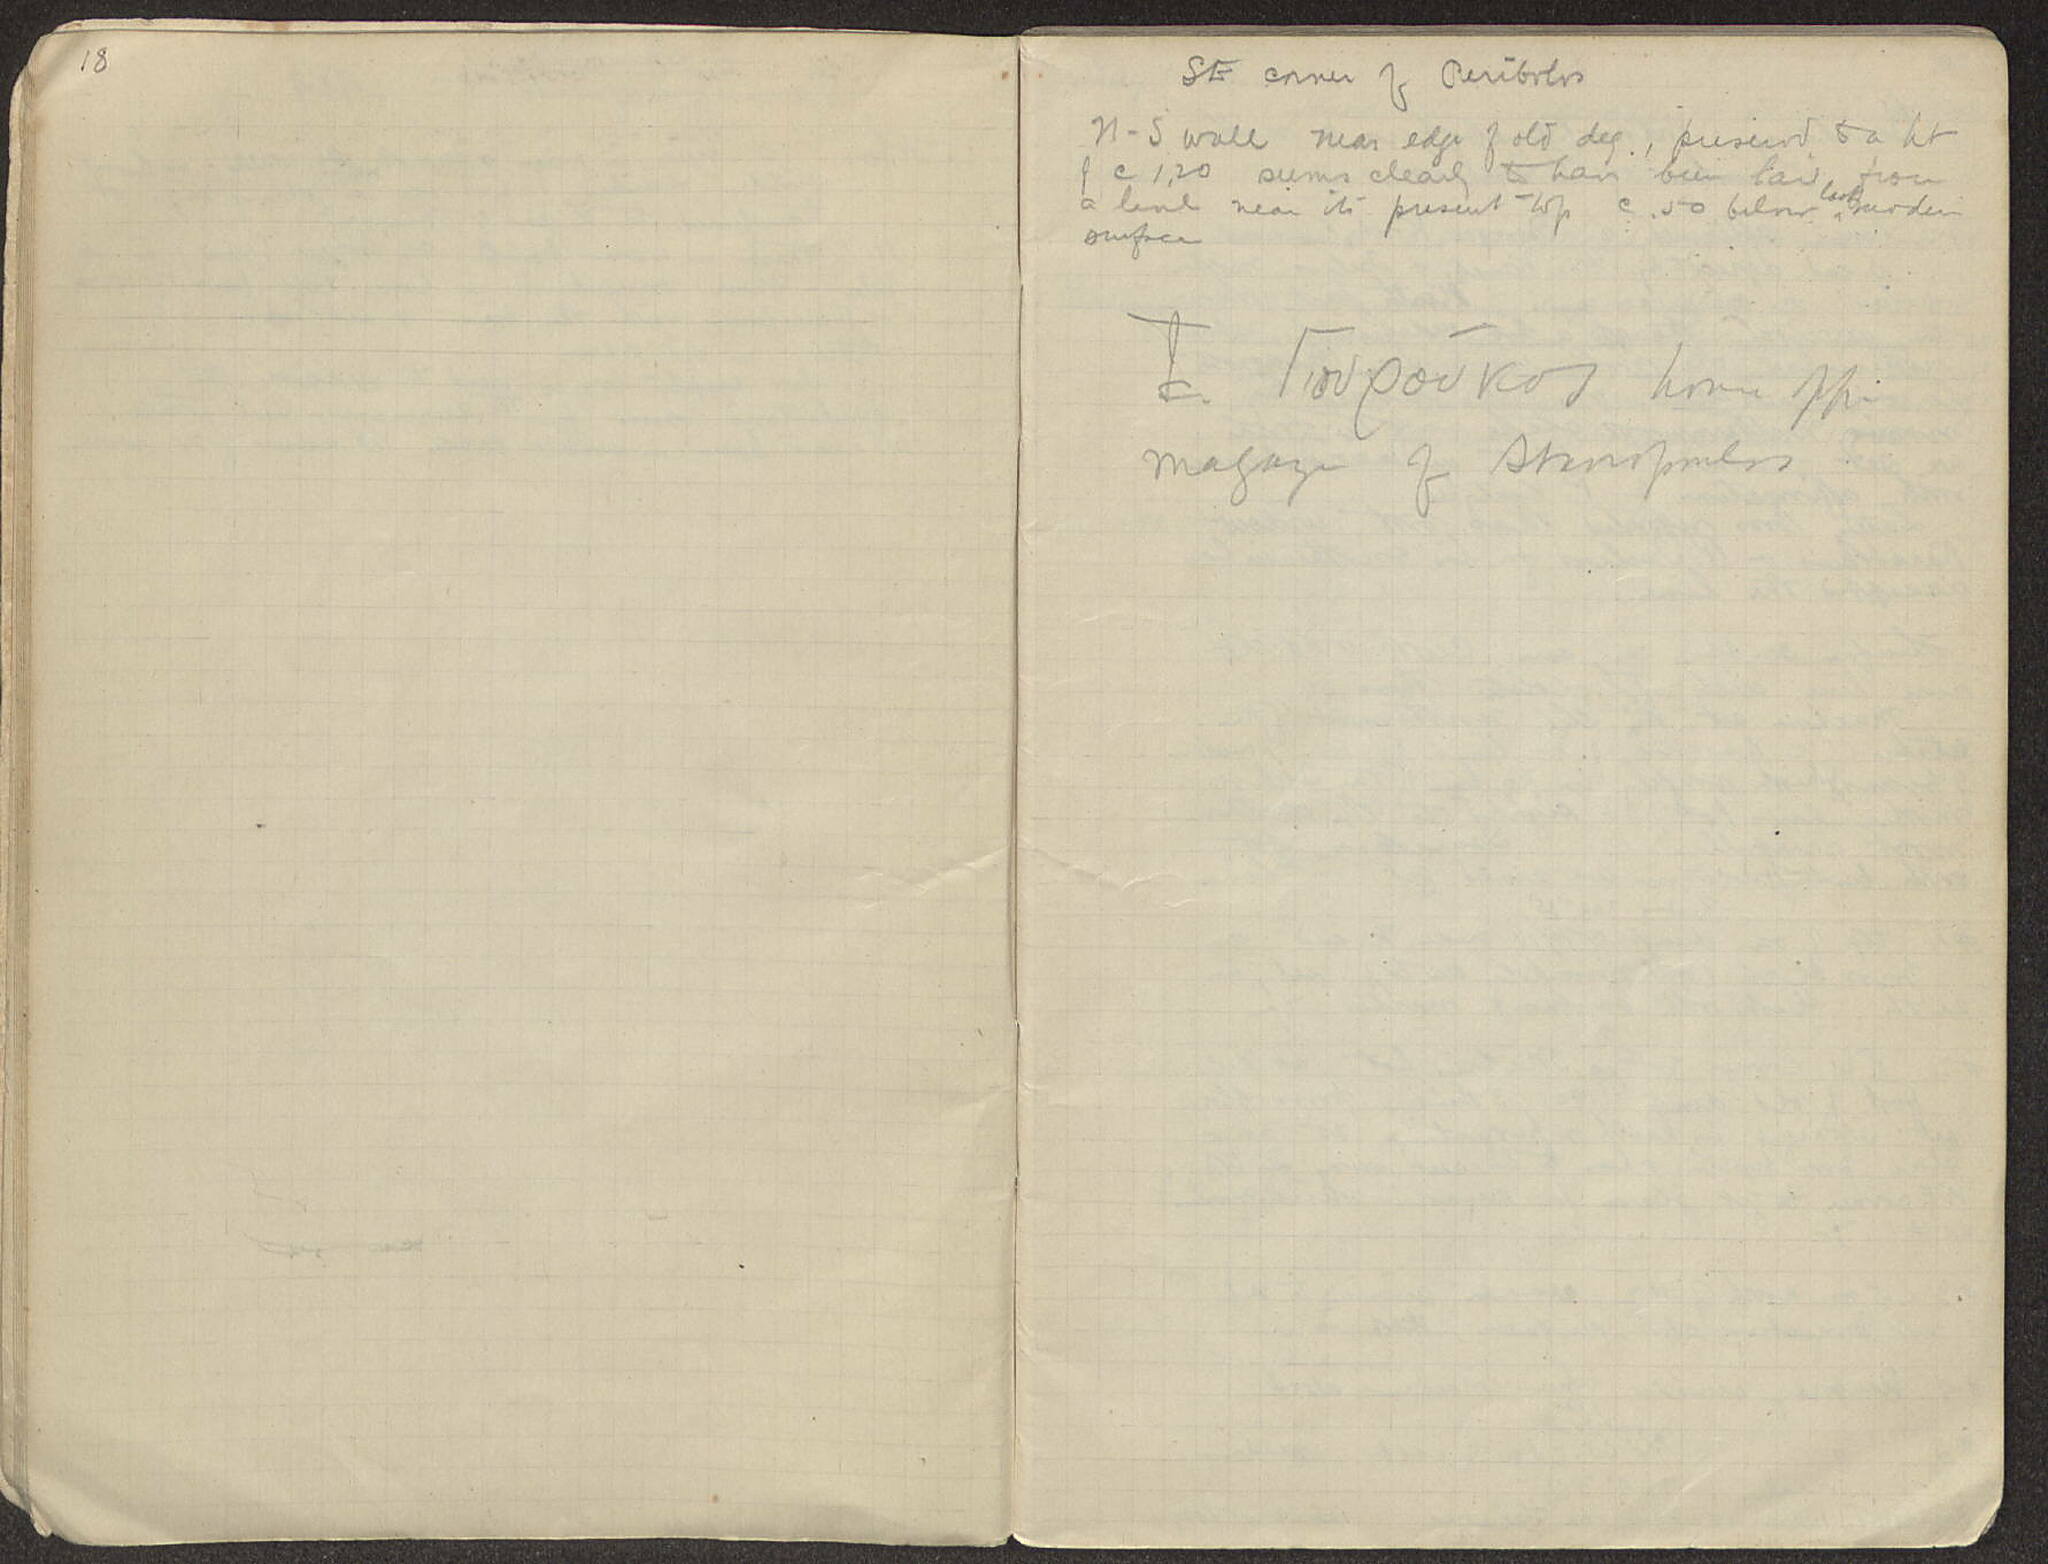 18
SE corner of Peribolos
N-S wall near edge of old deg., preserved to a ht
of c 1,20 seems clearly to have been laid from
a level near its present top c .50 below level modern
surface
Γιουρούκος home opp.
magazi of